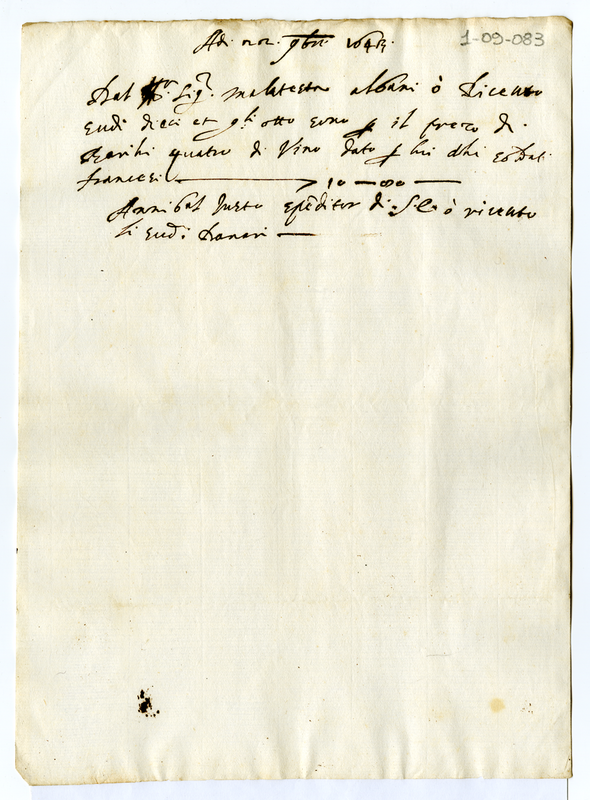 1-09-083
Adi 22. 9bre 1643.
Dal Sigr. Malatesta Albani ò Riceuto
scudi dieci et gli otto sono p il prezo di
Barili quatro di Vino dato p lui alli soldati
francesi 10 — 80
Annibal Justo speditor di S. C. ò riceuto
li scudi danari